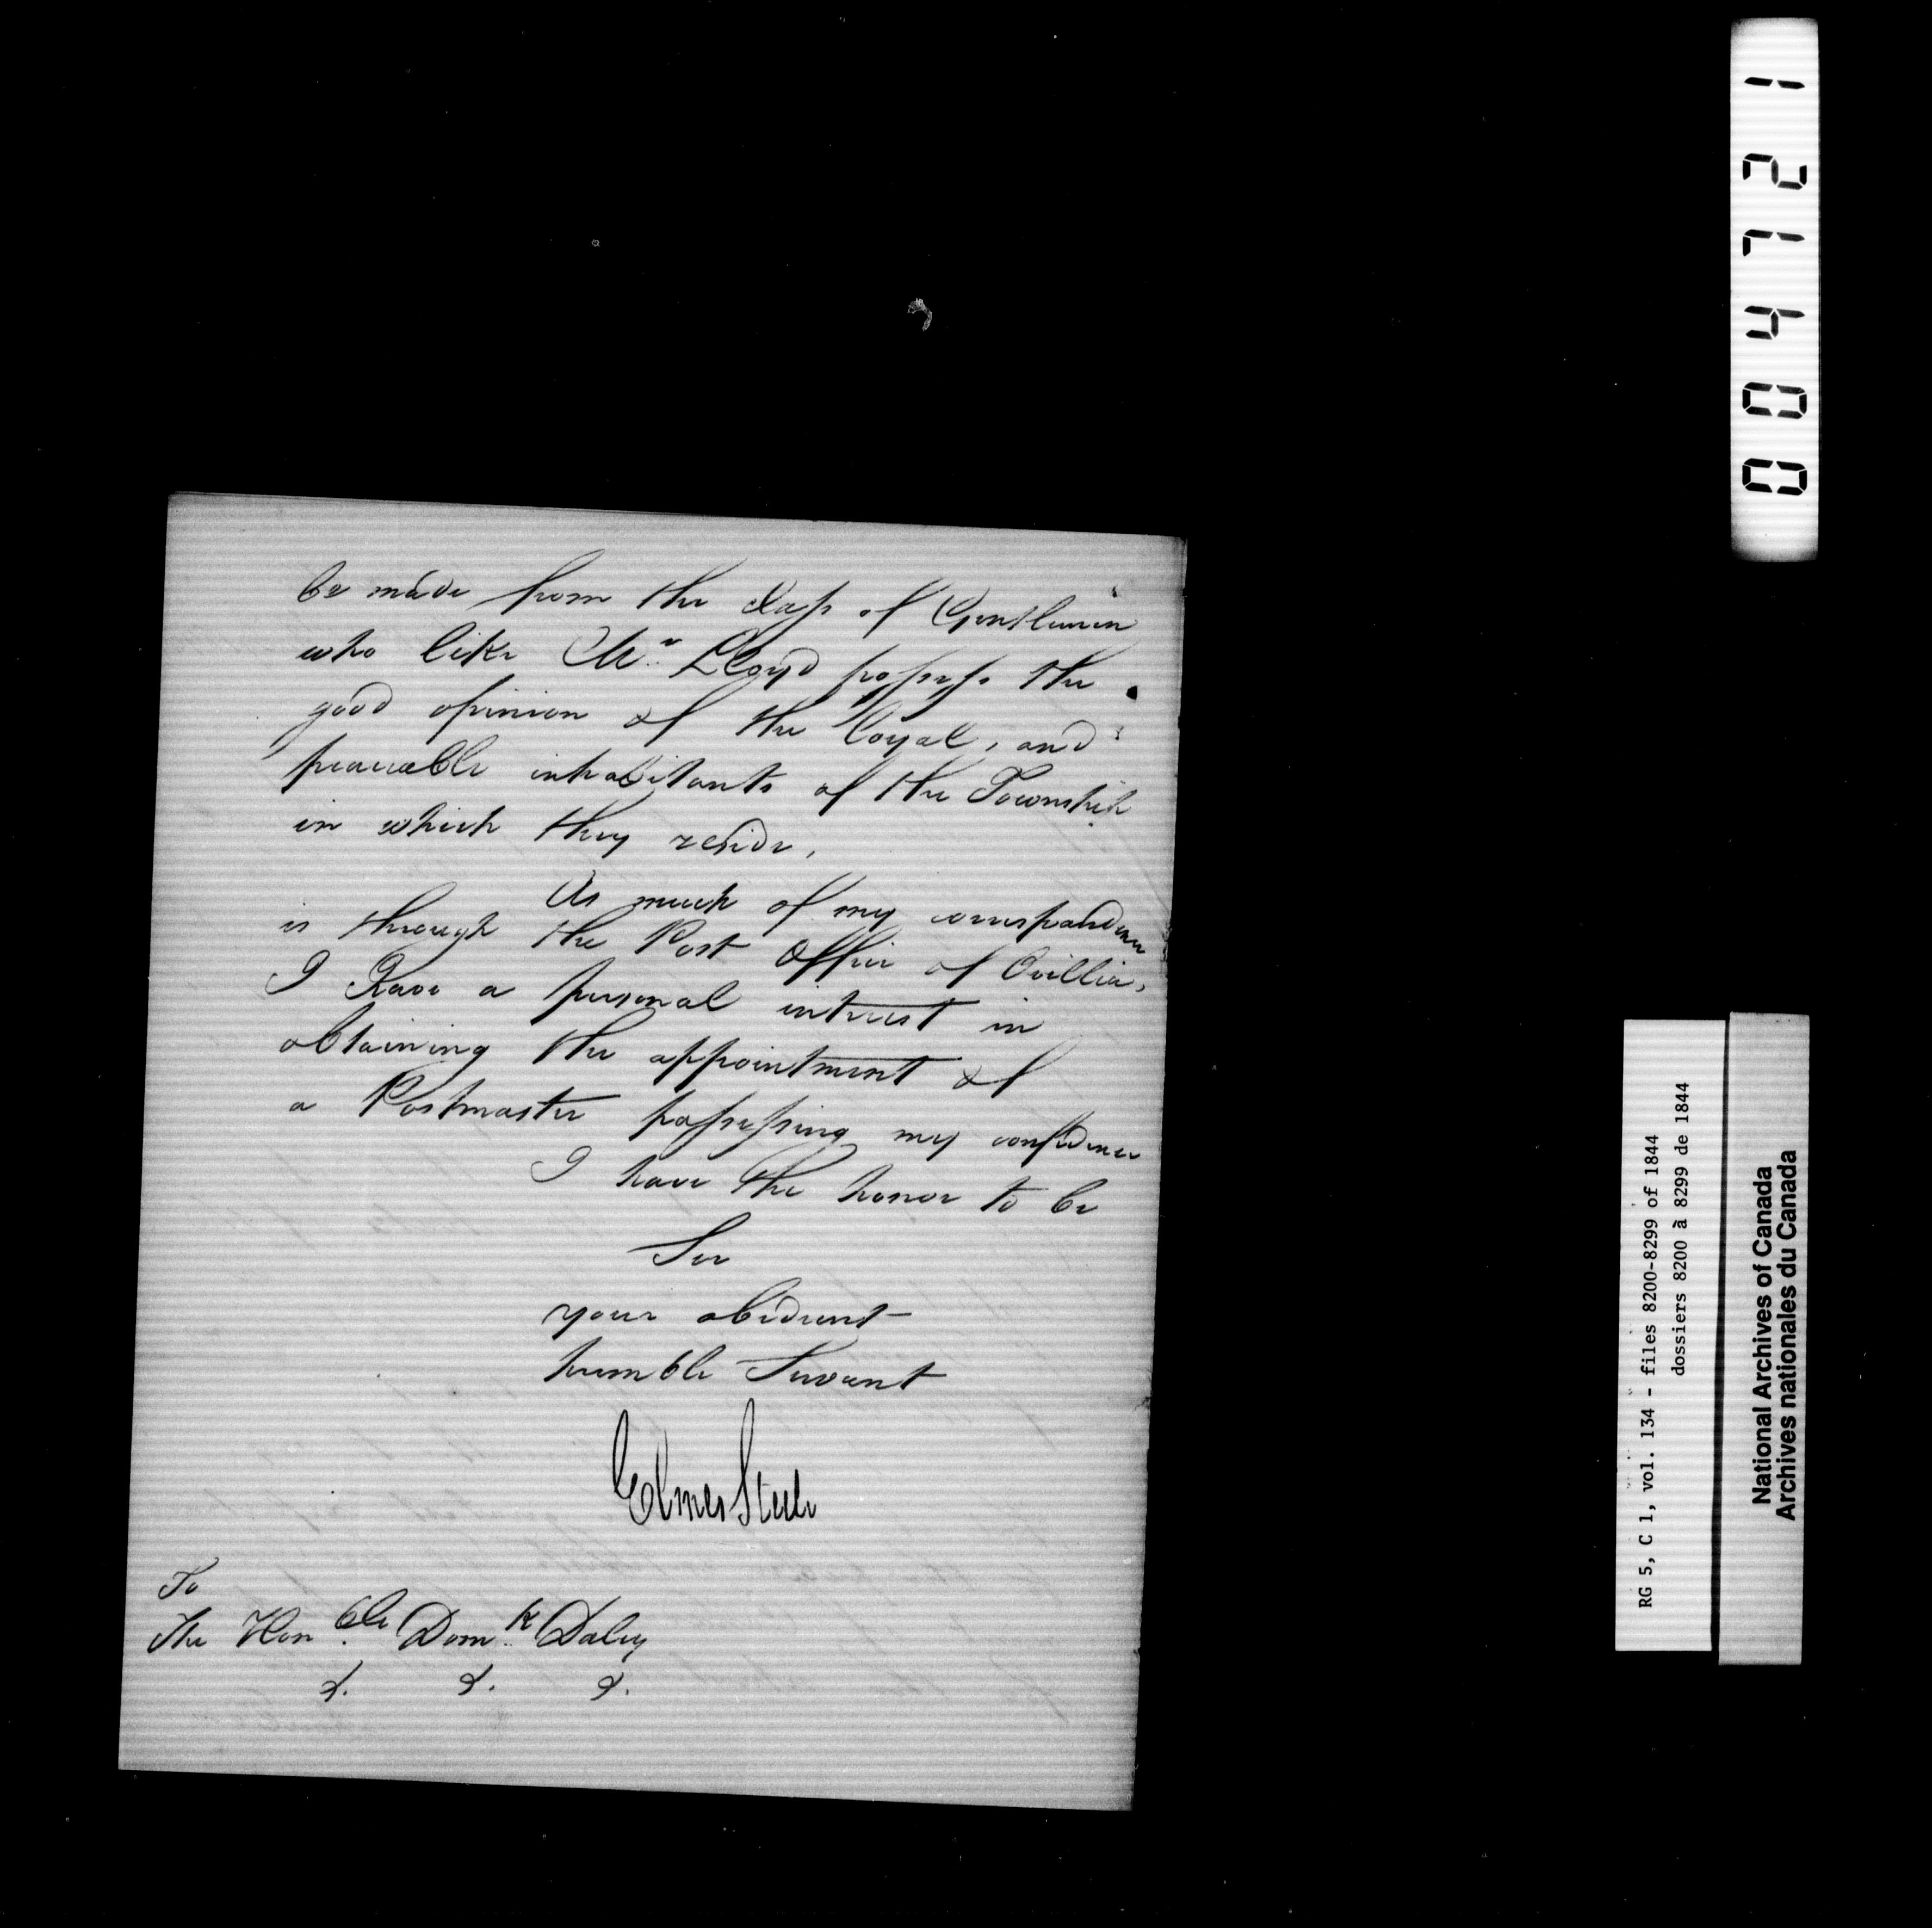 be made from the Class of Gentlemen
who like Mr. Lloyd possess the
good opinion of the loyal, and
peaceable inhabitants of the Township
in which they reside,
As much of my correspondence
is through the Post Office of Orillia,
I have a personal interest in
obtaining the appointment of
a Postmaster possessing my confidence
I have the honor to be
Sir
your obedient
humble Servant
Elmes Steele
To
The Honble Domk Daly
&. &. &.
004721
RG 5, C 1, vol. 134 - files 8200-8299 of 1844
dossiers 8200 à 8299 de 1844
National Archives of Canada
Archives nationales du Canada